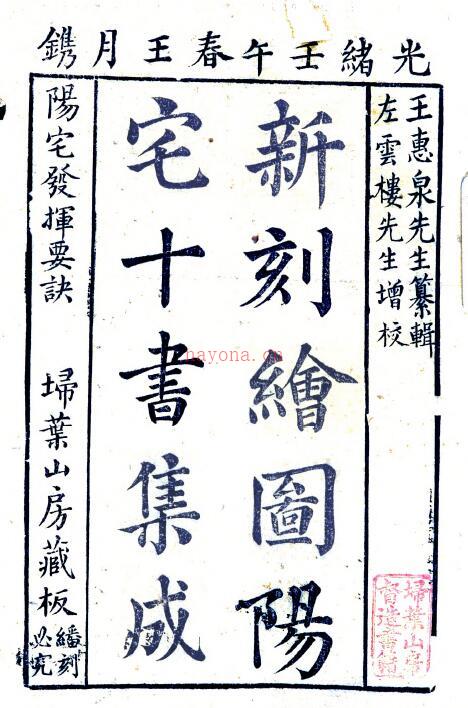 光緒壬午春王月鐫
王惠泉先生纂輯
左雲樓先生增校
新刻繪圖陽
宅十書集成
陽宅發揮要訣
埽葉山房藏板
繙刻
必究
埽葉山房
督造書籍
nayona.cn